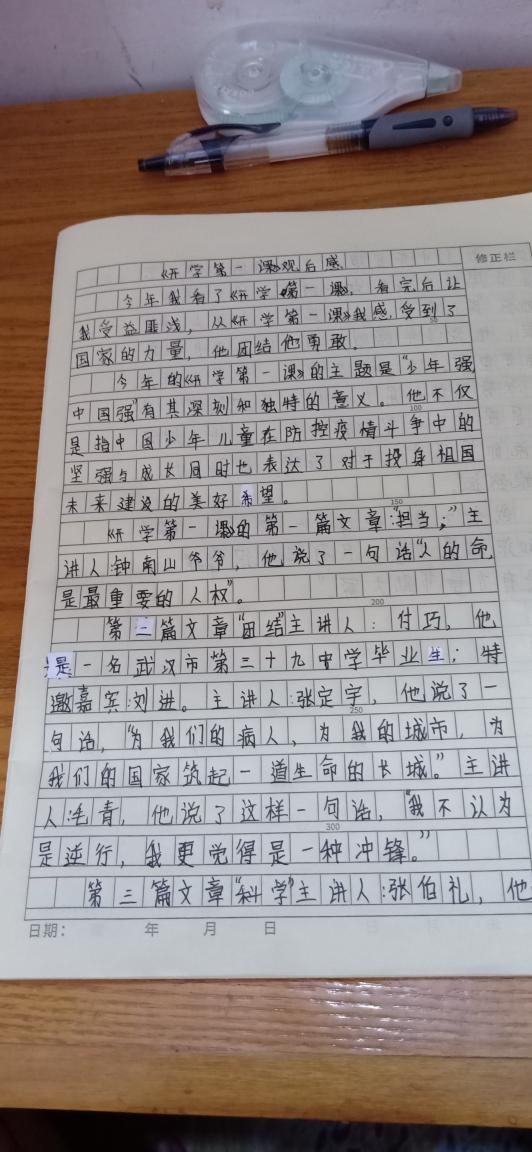 《开学第一课》观后感
修正栏
今年我看了《开学第一课》,看完后让
我受益匪浅,从《开学第一课》我感受到了
国家的力量,他团结他勇敢.
今年的《开学第一课》的主题是“少年强,
中国强”有其深刻和独特的意义。他不仅
100
是指中国少年儿童在防控疫情斗争中的
坚强与成长同时也表达了对于投身祖国
未来建设的美好希望。
150
《开学第一课》的第一篇文章:“担当;”主
讲人:钟南山爷爷,他说了一句话“人的命,
是最重要的人权”。
200
第二篇文章“团结”主讲人:付巧,他
是一名武汉市第三十九中学毕业生;特
邀嘉宾:刘进。主讲人:张定宇,他说了一
250
句话,“为我们的病人、为我的城市,为
我们的国家筑起一道生命的长城。”主讲
人:毛青,他说了这样一句话,“我不认为
300
是逆行,我更觉得是一种冲锋。”
第三篇文章“科学”主讲人:张伯礼,他
日期: 年 月 日